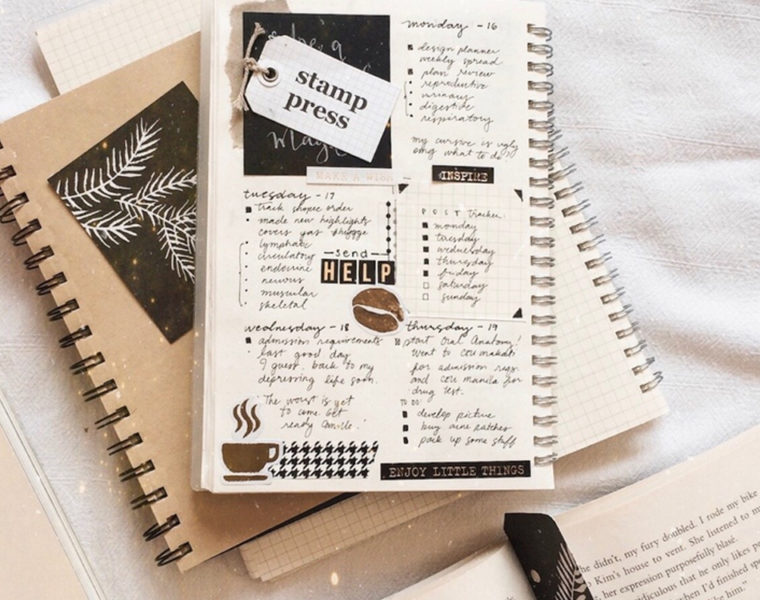 stamp
press
MAKE A WISH
monday - 16
design planner
weekly spread
plan review
reproductive
urinary
digestive
respiratory
my cursive is ugly
omg what to do?
INSPIRE
tuesday - 17
track shopee order
made new highlights
covers yas
lymphatic
circulatory
endocrine
nervous
muscular
skeletal
send
HELP
POST Tracker:
monday
tuesday
wednesday
thursday
friday
saturday
sunday
wednesday - 18
admission requirements
last good day
I guess. back to my
depressing life soon.
"The worst is yet
to come. Get
ready Camille."
thursday - 19
start Oral Anatomy!
Went to ceu makati
for admission reqs.
and ceu manila for
drug test.
TO DO:
develop picture
buy acne patches
pack up some stuff
ENJOY LITTLE THINGS
he didn't, my fury doubled. I rode my bike
Kim's house to vent. She listened to
her expression purposefully blasé.
ridiculous that he only likes
when I'd finished
like him."